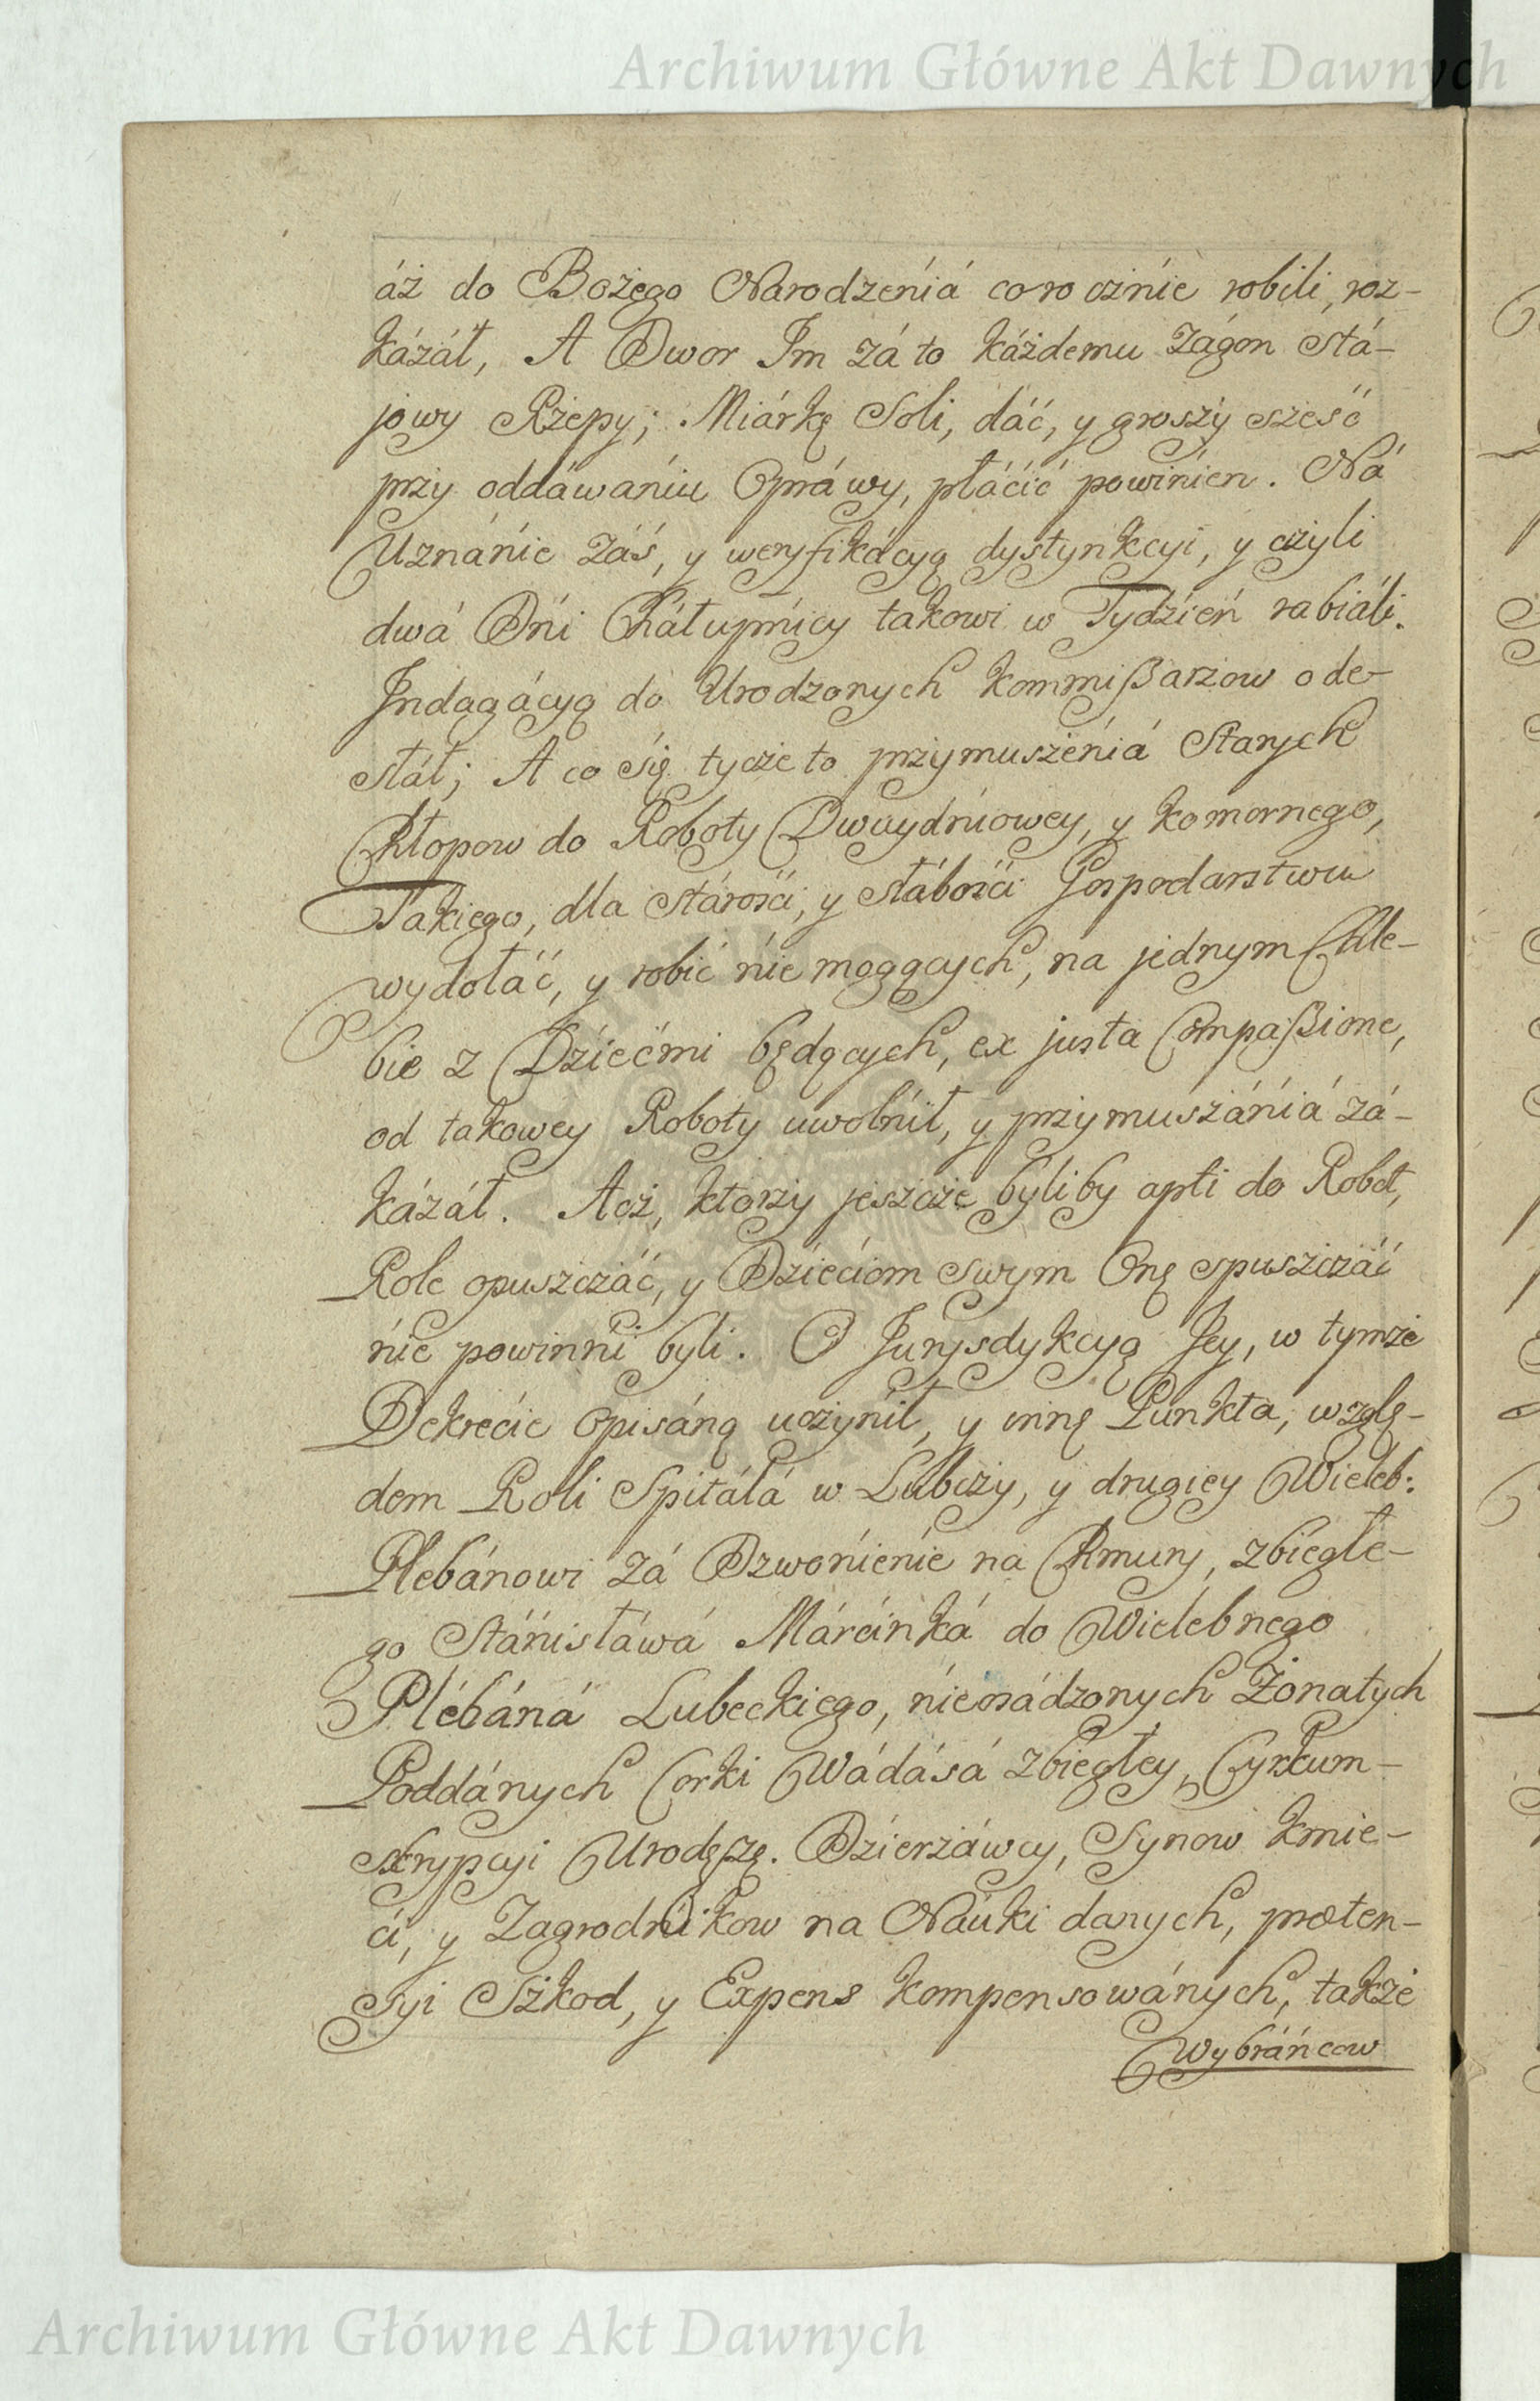 Archiwum Główne Akt Dawnych
áż do Bożego Narodzeńiá corocżńie robili, roz-
kázáł, A Dwor Im zá to káżdemu Zágon stá-
jowy Rżepy; Miárkę Soli, dáć, y groszy sześć
przy oddáwáńiu Oprá wy, płáćić powińien. Ná
Uznáńie záś, y weryfikácyą dystynkcyi, y czyli
dwá Dńi Cháłupńicy takowi w Tydźień rabiáli.
Indagácyą do Urodzonych kommißarzow ode-
słáł; A co śię tycze to przymuszeńiá Starych
Chłopow do Roboty Dwuydńiowey, y komornego,
Takiego, dla stárośći, y słábośći Gospodarstwu
wydołáć, y robić ńie mogących, na jednym Chle-
bie z Dźiećmi będących, ex justa Compaßione,
od takowey Roboty uwolńił, y przymuszáńiá zá-
kázáł. A ći, ktorzy jeszcze byliby apti do Robot,
Role opuszczáć, y Dźiećiom swym Onę spuszczáć
ńie powinńi byli. O Jurysdykcyą Jey, w tymże
Dekrećie Opisáną uczyńił, y inne Punkta, wzglę-
dem Roli Spitálá w Lubczy, y drugiey Wieleb:
Plebánowi zá Dzwońieńie na Chmury, zbiegłe-
go Stáńisłáwá Márćinká do Wielebnego
Plebáná Lubeckiego, ńieosádzonych Żonatych
Poddánych Corki Wádásá zbiegłey, Cyrkum-
skrypcyi Urodz. Dźierżáwcy, Synow kmie-
ći, y Zagrodńikow na Náuki danych, præten-
syi Szkod, y Expens kompensowánych, także
Wybráńcow
Archiwum Główne Akt Dawnych